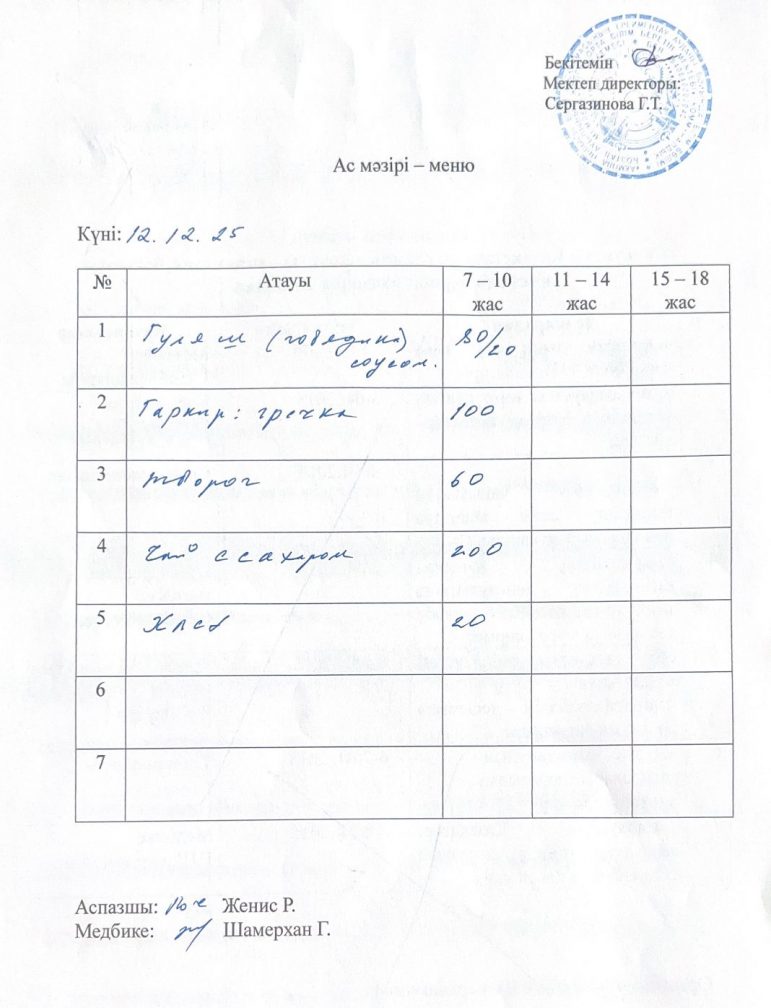 Бекітемін
Мектеп директоры:
Сергазинова Г.Т.
Ас мәзірі – меню
Күні: 12. 12. 25
№ Атауы 7 – 10 жас 11 – 14 жас 15 – 18 жас
1 Гуляш (говядина) 80/20
соусом.
2 Гарнир: гречка 100
3 творог 60
4 Чай с сахаром 200
5 Хлеб 20
6
7
Аспазшы: Женис Р.
Медбике: Шамерхан Г.